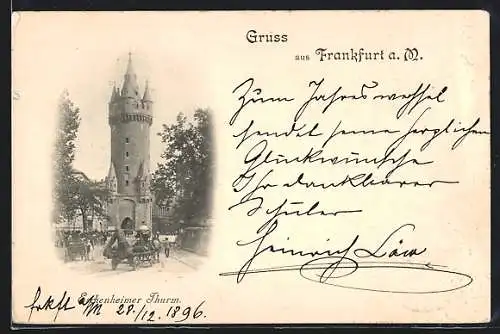 Gruss
aus Frankfurt a. M.
Zum Jahreswechsel
sendet seine herzlichen
Glückwünsche
Ihr dankbarer
Schüler
Heinrich Löw
Eschenheimer Thurm.
Frkft a/M 28./12. 1896.